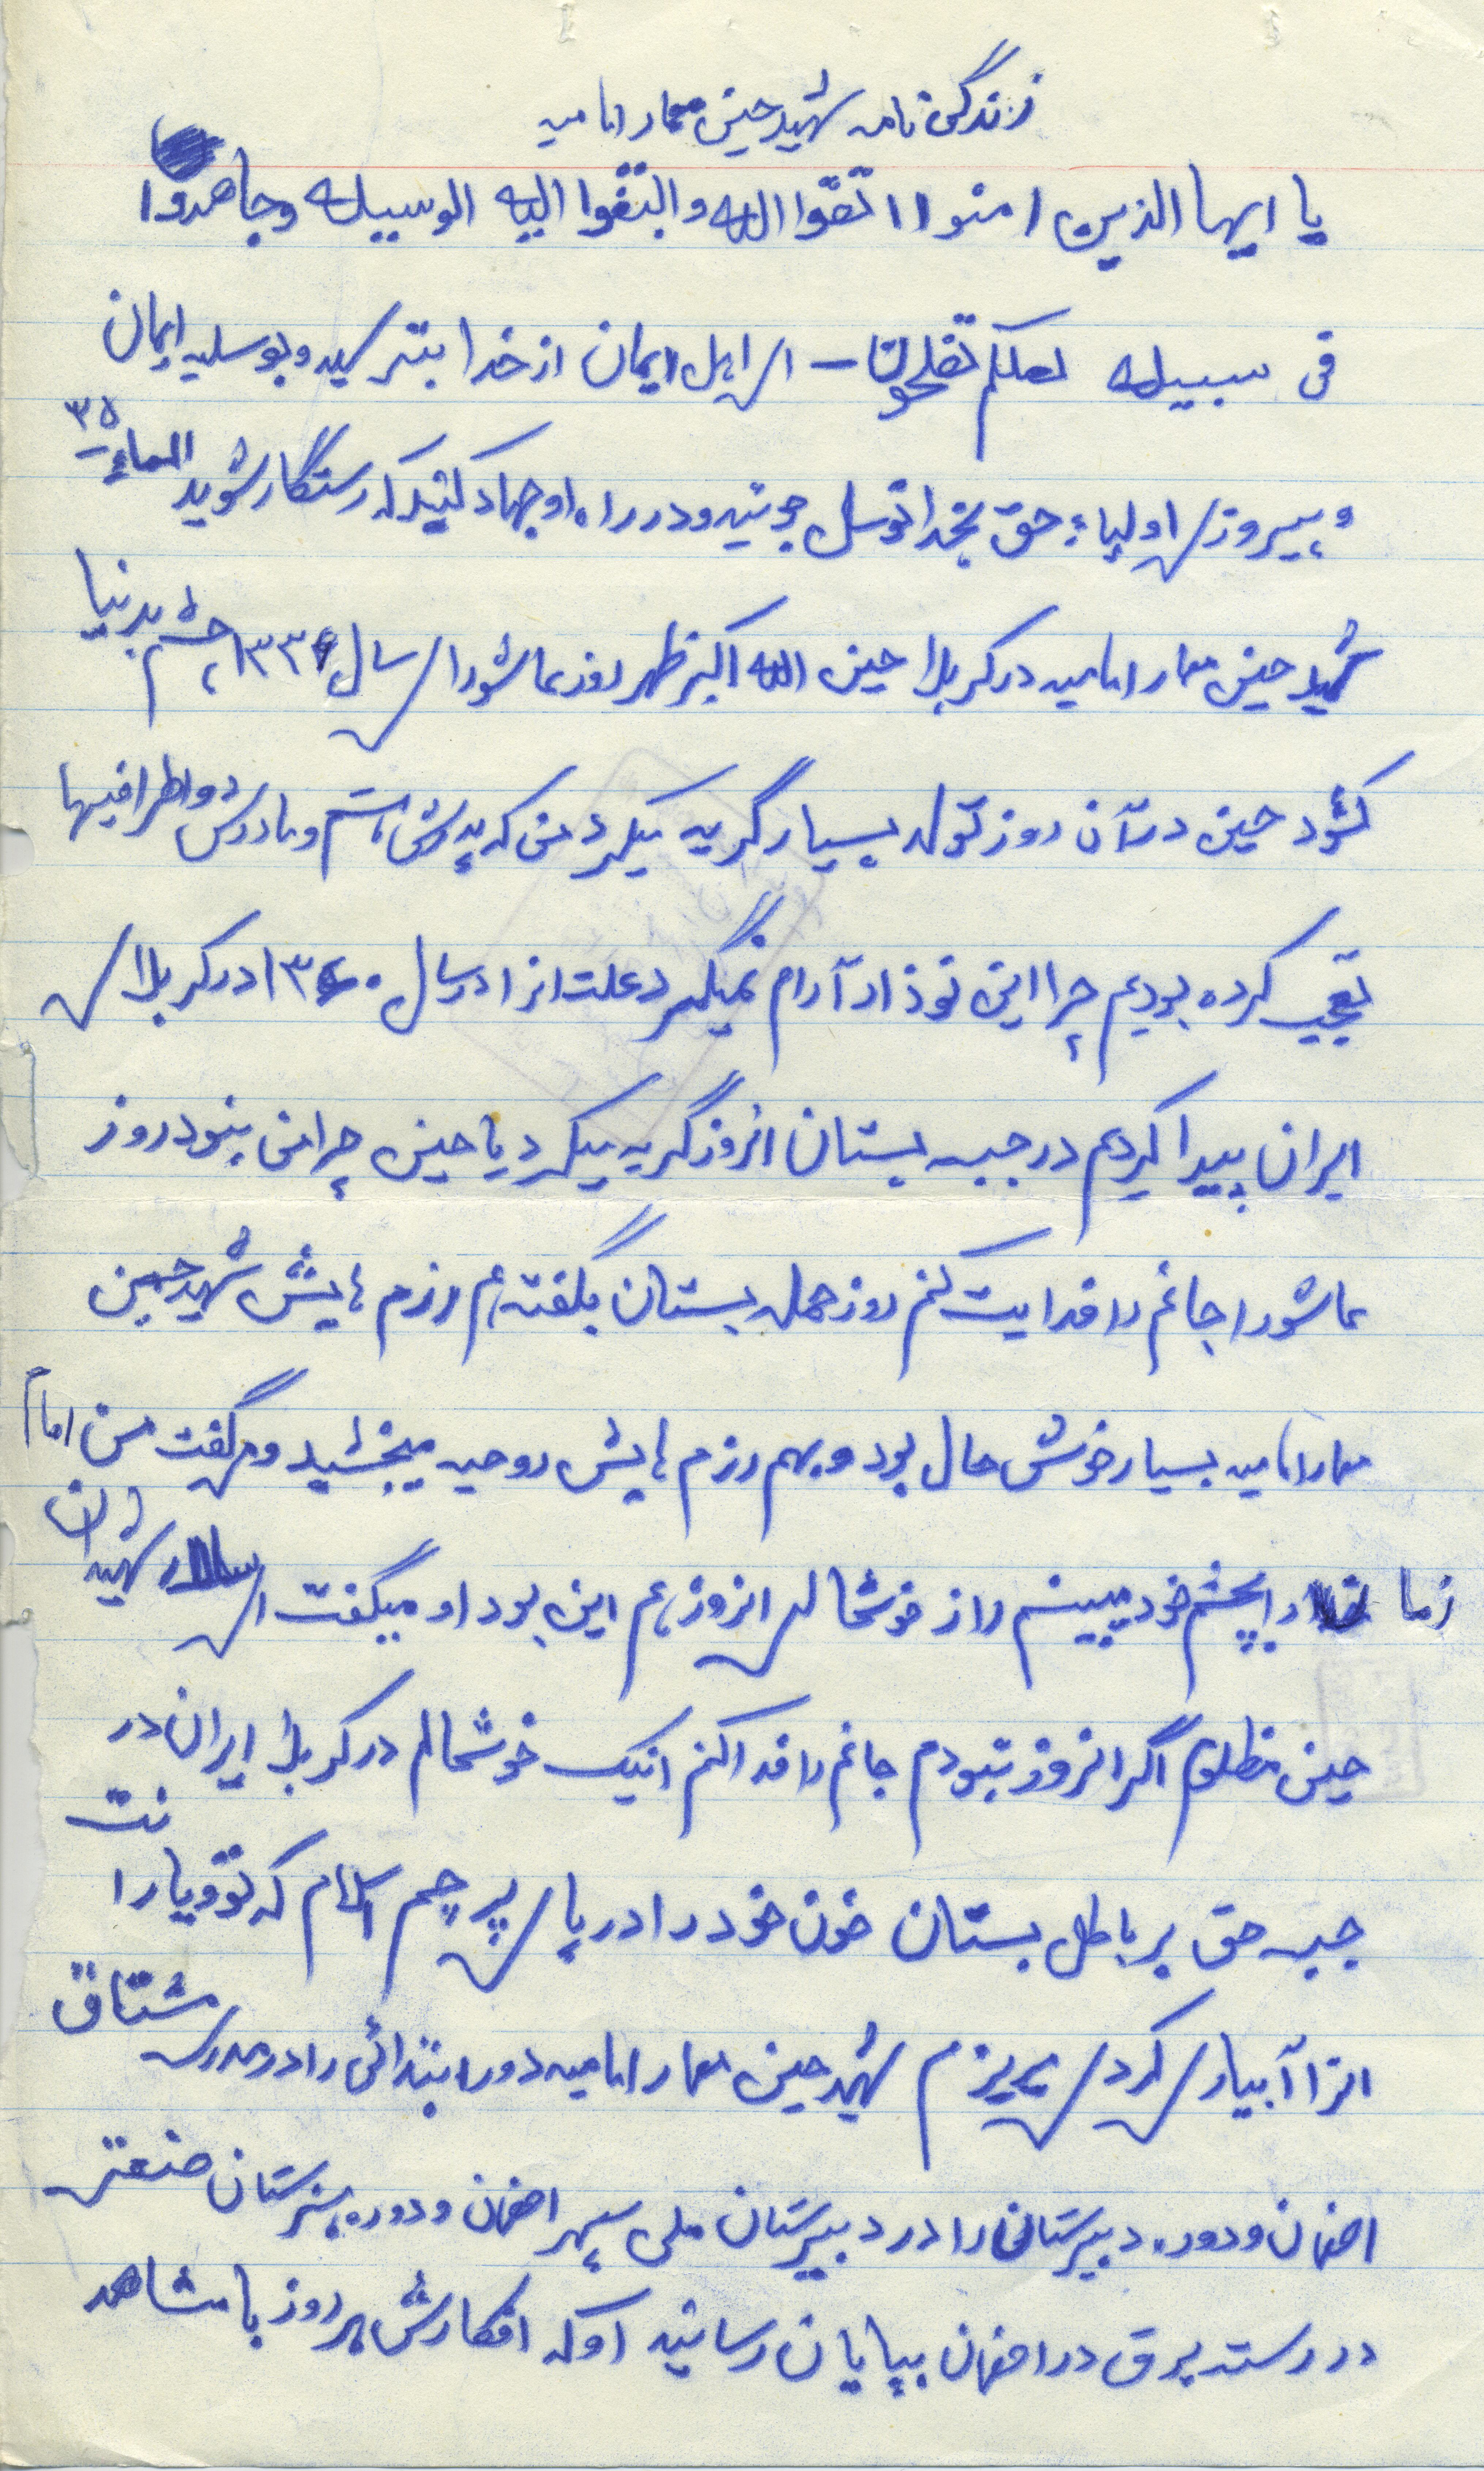 زندگی نامه شهید حسین معمار امامیه
یا ایها الذین امنوا اتقوا الله و ابتغوا الیه الوسیله وجاهدوا
فی سبیله لعلکم تفلحون - ای اهل ایمان از خدا بترسید و بوسلیه ایمان
و پیروزی اولیاء حق بخدا توسل جوئید و در راه او جهاد کنید که رستگار شوید المائده ۳۵
شهید حسین معمار امامیه در کربلا حین الله اکبر ظهر روز عاشورای سال ۱۳۳۶ چشم بدنیا
گشود حسین در آن روز تولد بسیار گریه میکرد من که پدرش هستم و مادرش و اطرافیها
تعجب کرده بودیم چرا این نوزاد آرام نمیگیرد علت انرا در سال ۱۳۶۰ در کربلای
ایران پیدا کردیم در جبهه بستان انروز گریه میکرد یا حسین چرا من نبودم روز
عاشورا جانم را فدایت کنم روز حمله بستان بگفته هم رزم هایش شهید حسین
معمار امامیه بسیار خوش حال بود و بهم رزم هایش روحیه میبخشید و میگفت من امام
زمان را بچشم خود میبینم راز خوشحالی انروز هم این بود او میگفت ای سالار شهیدان
حسین مظلوم اگر انروز نبودم جانم را فدا کنم اینک خوشحالم در کربلا ایران در
جبهه حق بر باطل بستان خون خود را در پای پرچم اسلام که تو و یارانت
انرا آبیاری کردی بریزم شهید حسین معمار امامیه دوره ابتدائی را در مدرسه مشتاق
اصفهان و دوره دبیرستانی را در دبیرستان ملی سپهر اصفهان و دوره هنرستان صنعتی
در رسته برق در اصفهان بپایان رسانید او که افکارش هر روز با مشاهد